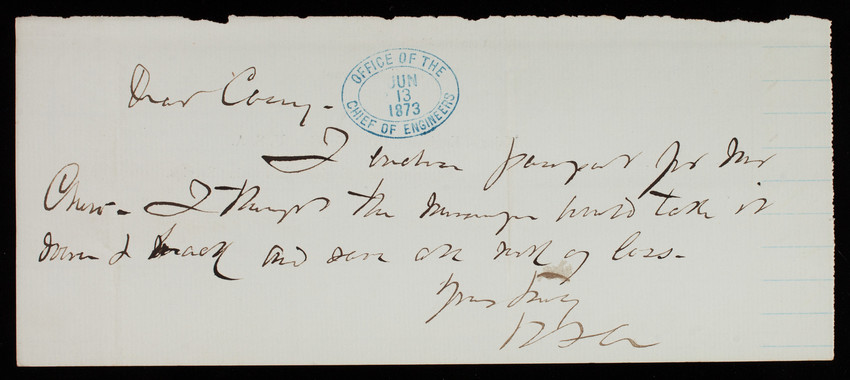 Dear Casey -
OFFICE OF THE
JUN
13
1873
CHIEF OF ENGINEERS
I enclose passport for Mr
Chew - I thought the messenger could take it
down & back and save all risk of loss -
Yours truly